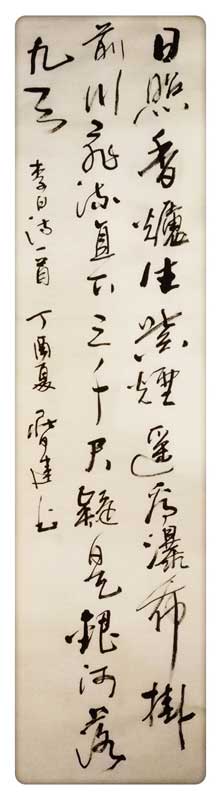 日照香爐生紫煙遥看瀑布掛
前川飛流直下三千尺疑是銀河落
九天 李白诗一首 丁酉夏